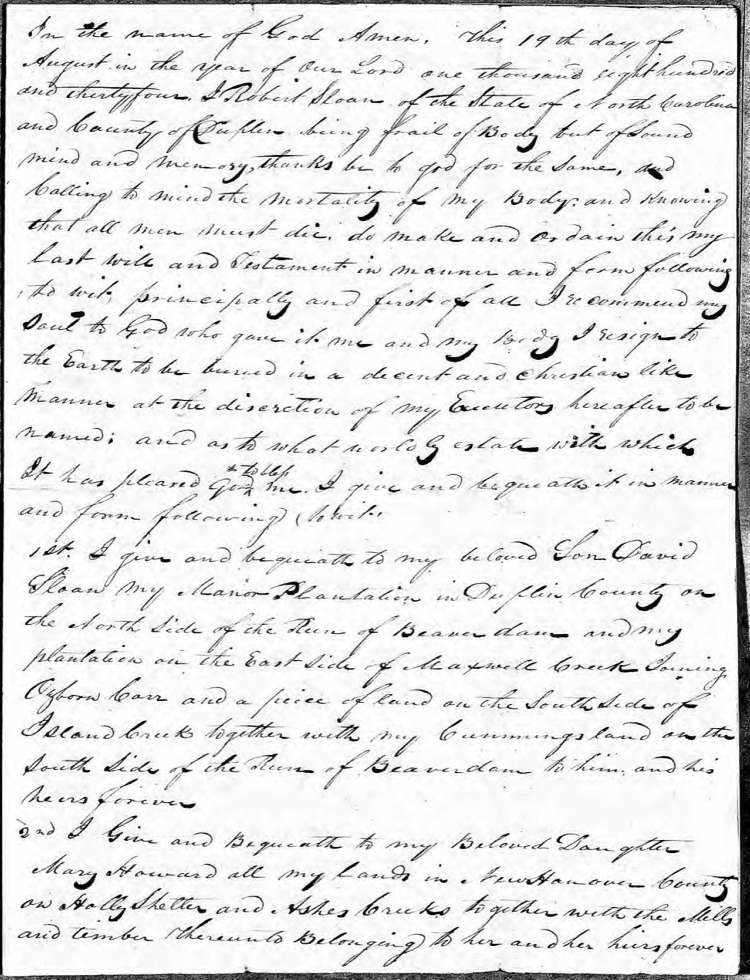 In the name of God Amen. This 19th day of
August in the year of our Lord one thousand eight hundred
and thirtyfour. I Robert Sloan of the State of North Carolina
and County of Duplin being frail of Body but of Sound
mind and memory, thanks be to god for the Same, and
Calling to mind the mortality of my Body: and Knowing
that all men must die. do make and ordain this my
last will and Testament in manner and form following
, to wit, principally and first of all I recommend my
Soul to God who gave it me and my body I resign to
the Earth to be buried in a decent and Christian like
manner at the discretion of my Executors hereafter to be
named; and as to what worldly estate with which
to bless
It has pleased God me. I give and bequeath it in manner
and form following (to wit.
1st. I give and bequeath to my beloved Son David
Sloan My Manor Plantation in Duplin County on
the North Side of the Run of Beaverdam and my
plantation on the East Side of Maxwell Creek Joining
Ozborn Carr and a piece of land on the South Side of
Island Creek together with my Cummings land on the
South Side of the Run of Beaverdam to him. and his
heirs forever
2nd I Give and Bequeath to my Beloved Daughter
Mary Howard all my lands in New Hanover County
on Holly Shelter and Ashes Creeks together with the Mills
and timber thereunto Belonging to her and her heirs forever